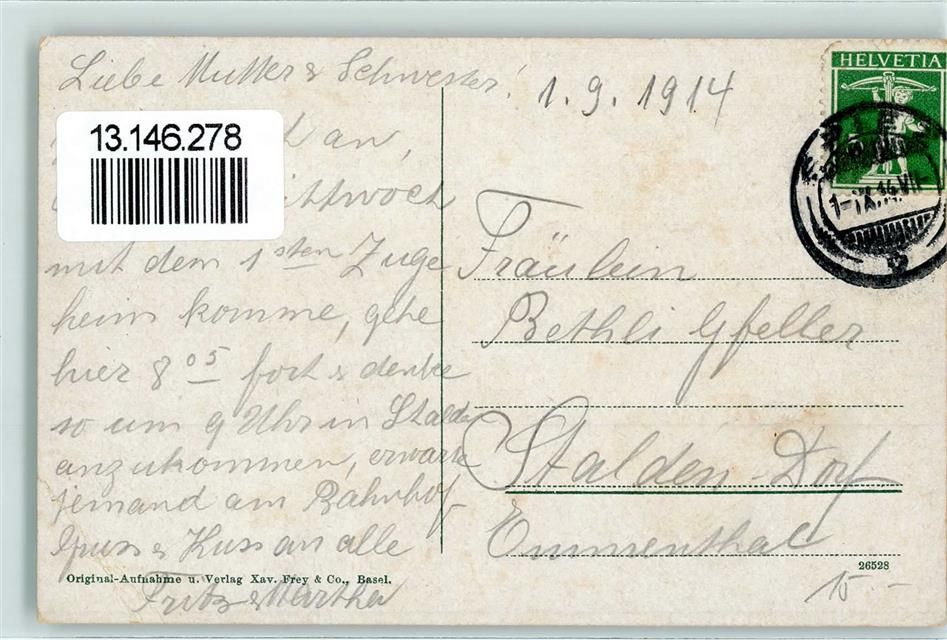 Liebe Mutter & Schwester!
1.9.1914
HELVETIA
13.146.278
an,
ittwoch
mit dem 1sten Zuge
heim komme, gehe
hier 8 05 fort & denke
so um 9 Uhr in Stalden
anzukommen, erwarte
jemand am Bahnhof
Gruss & Kuss an alle
Fritz & Martha
Original-Aufnahme u. Verlag Xav. Frey & Co., Basel.
Fräulein
Bethli Gfeller
Stalden Dorf
Emmenthal
26528
15.-